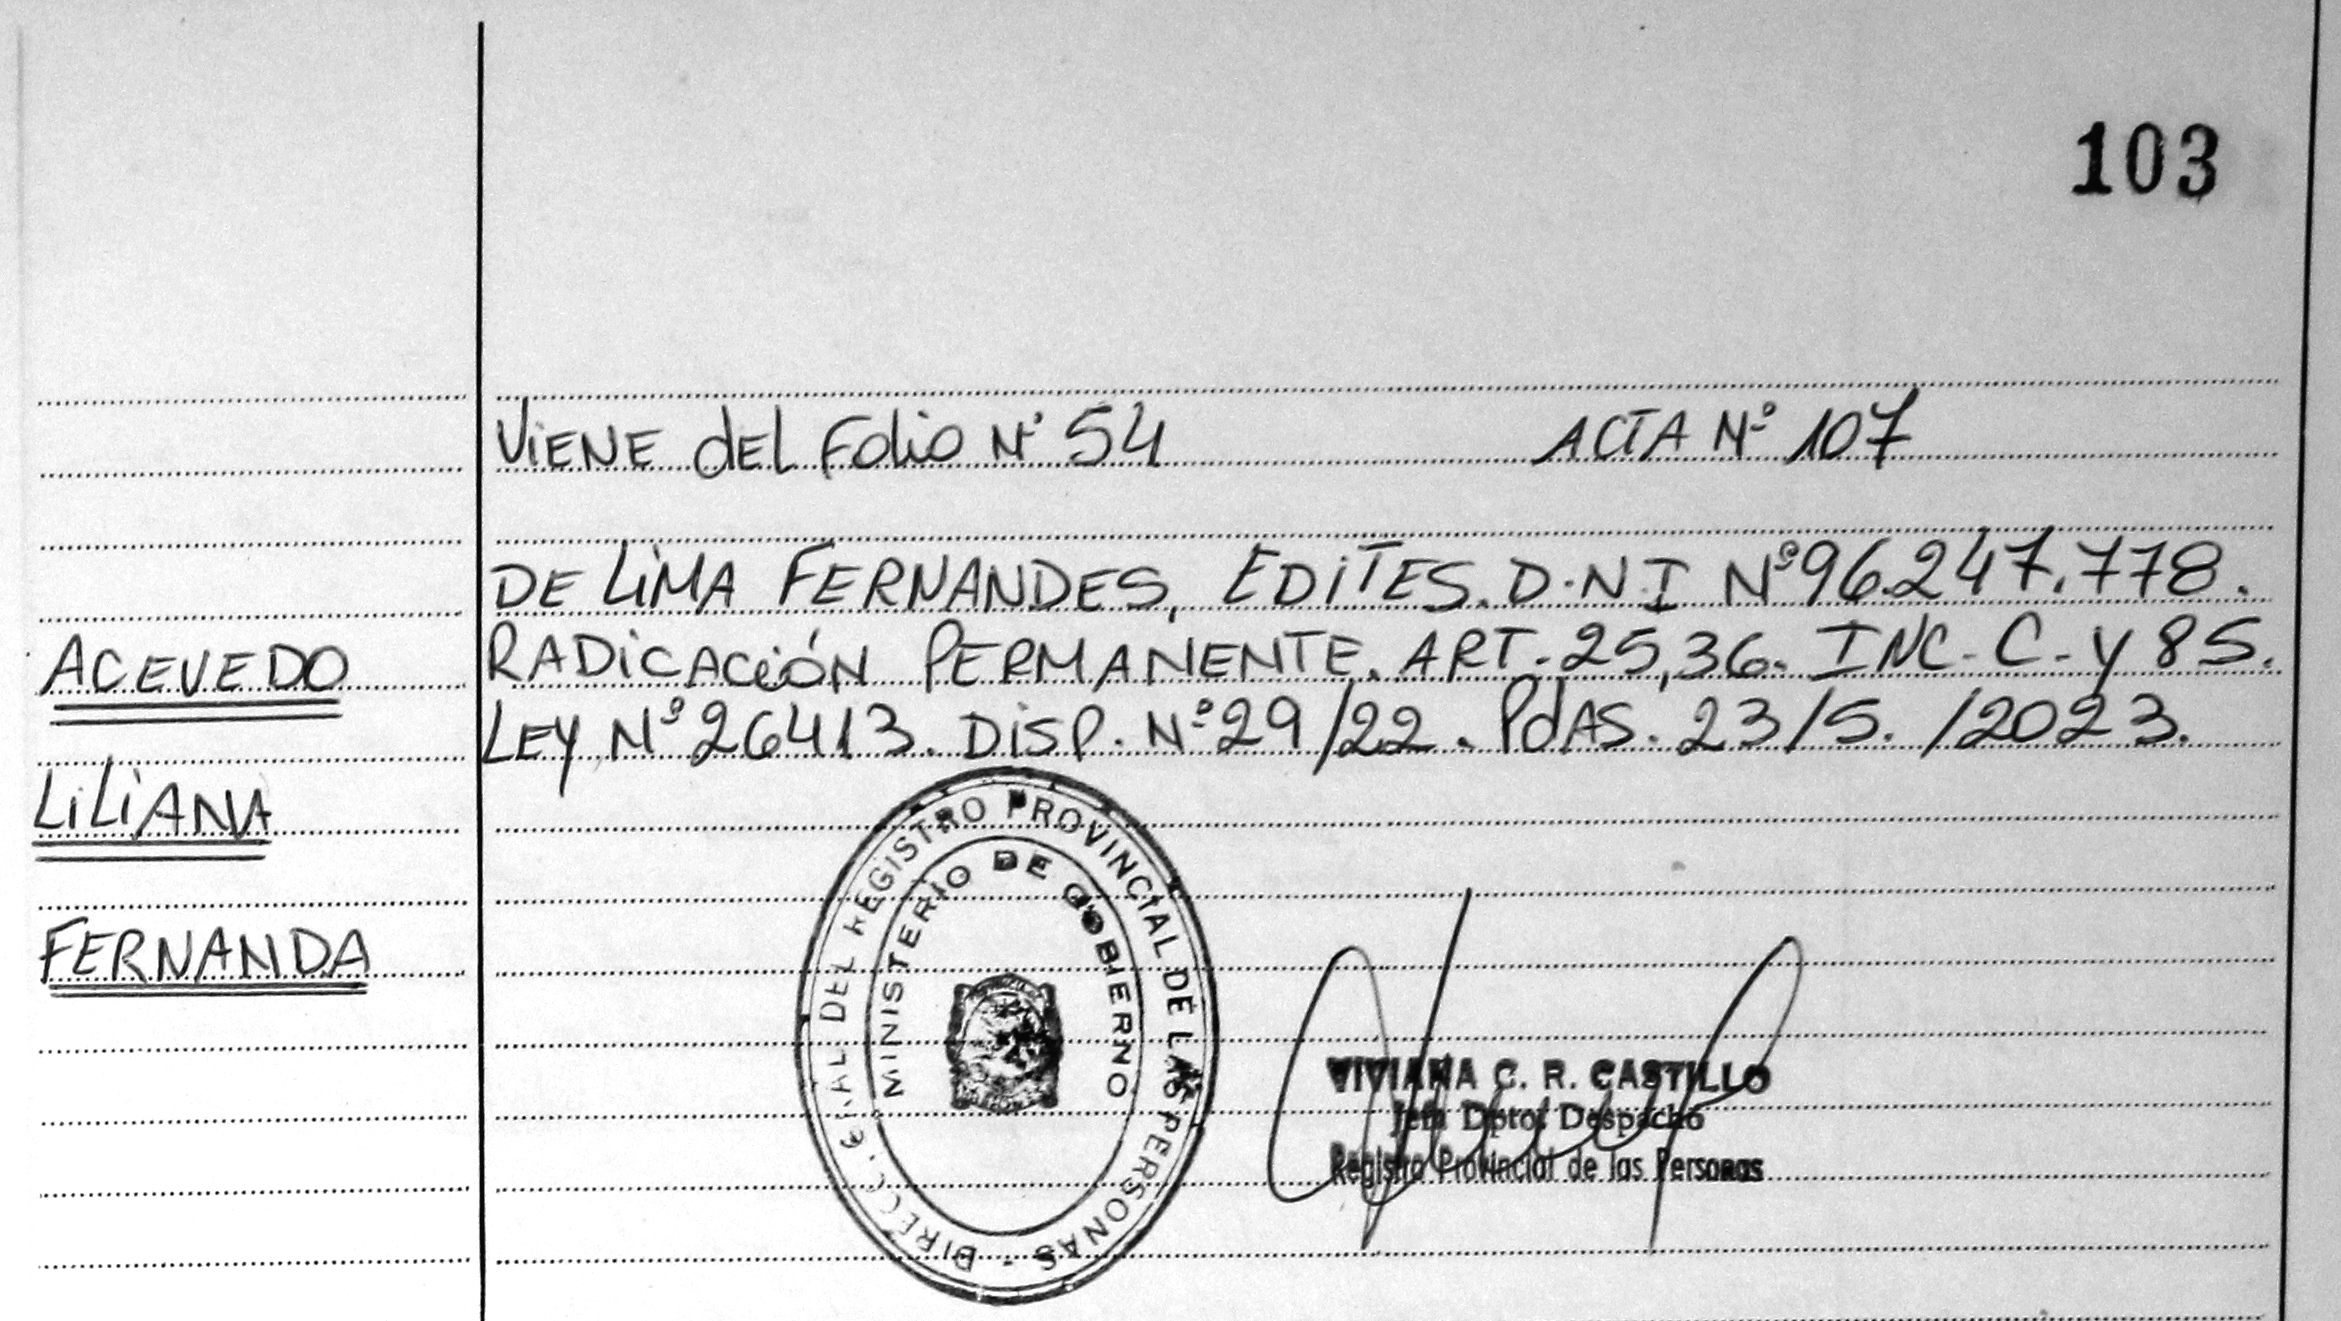 103
VIENE del Folio N° 54 ACTA Nº 107
DE LIMA FERNANDES, EDITES. D.N.I Nº 96.247.778.
RADICACIÓN PERMANENTE. ART. 25,36. INC. C. y 85.
LEY Nº 26413. DISP. Nº 29/22. PdAS. 23/5./2023.
ACEVEDO
LILIANA
FERNANDA
DEL REGISTRO PROVINCIAL DE LAS PERSONAS -
MINISTERIO DE GOBIERNO
VIVIANA C. R. CASTILLO
Jefa Dpto. Despacho
Registro Provincial de las Personas